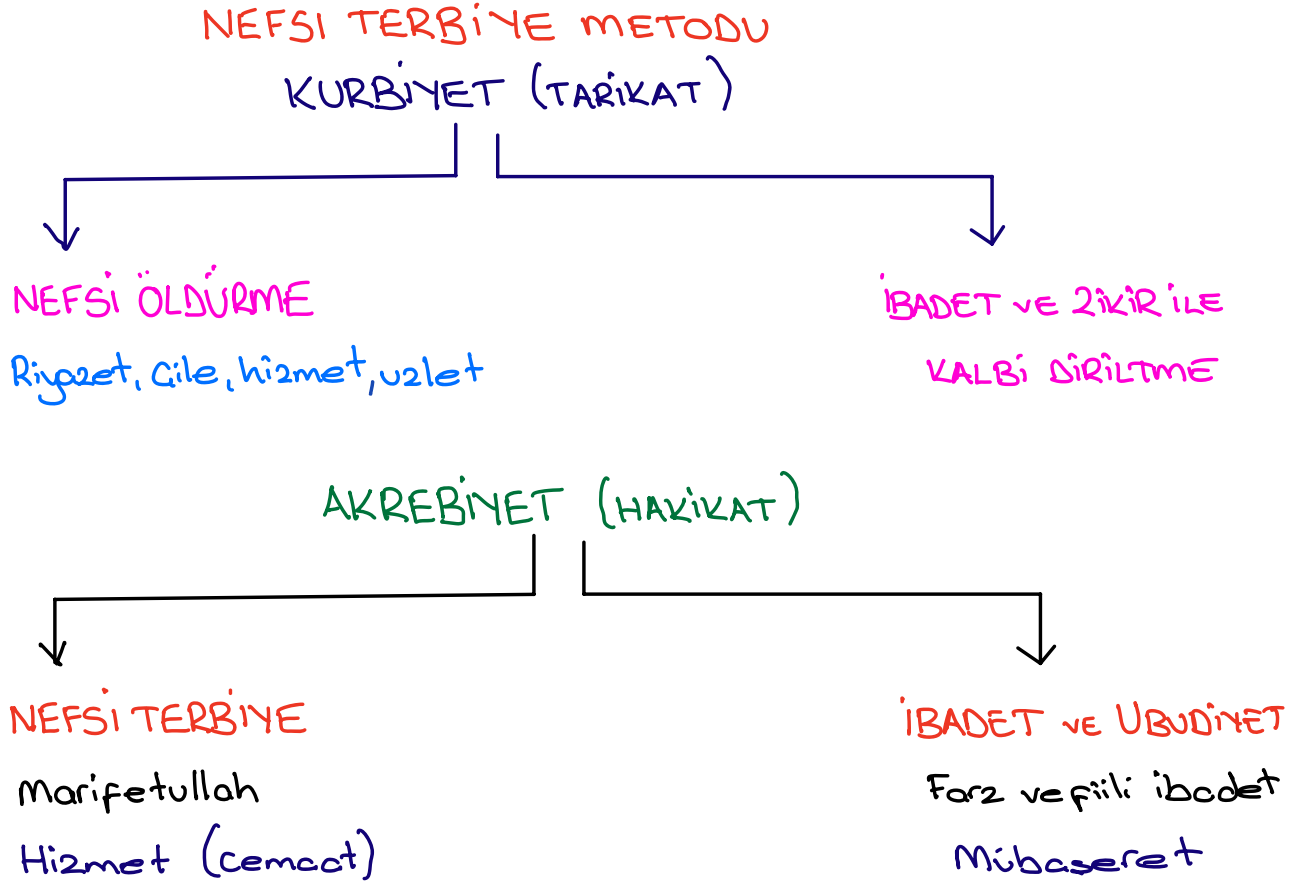 NEFSİ TERBİYE METODU
KURBİYET (TARİKAT)
NEFSİ ÖLDÜRME
Riyazet, Çile, hizmet, uzlet
İBADET ve ZİKİR İLE
KALBİ DİRİLTME
AKREBİYET (HAKİKAT)
NEFSİ TERBİYE
Marifetullah
Hizmet (cemaat)
İBADET ve UBUDİYET
Farz ve fiili ibadet
Mübaşeret